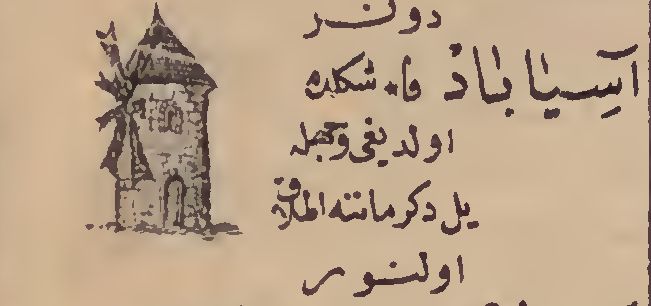 دونر
آسِیابادْ فا· شکلده
اولدیغی وجهله
یل دکرماننه اطلاق
اولنور